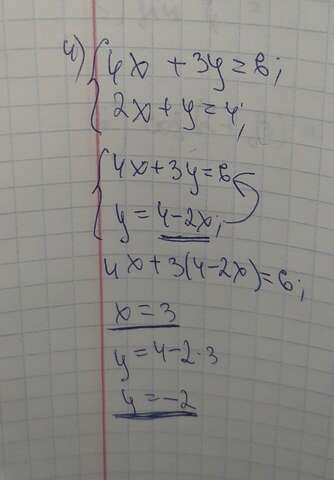 4) { 4x + 3y = 6;
2x + y = 4;
{ 4x + 3y = 6
y = 4 - 2x;
4x + 3(4 - 2x) = 6;
x = 3
y = 4 - 2 · 3
y = -2